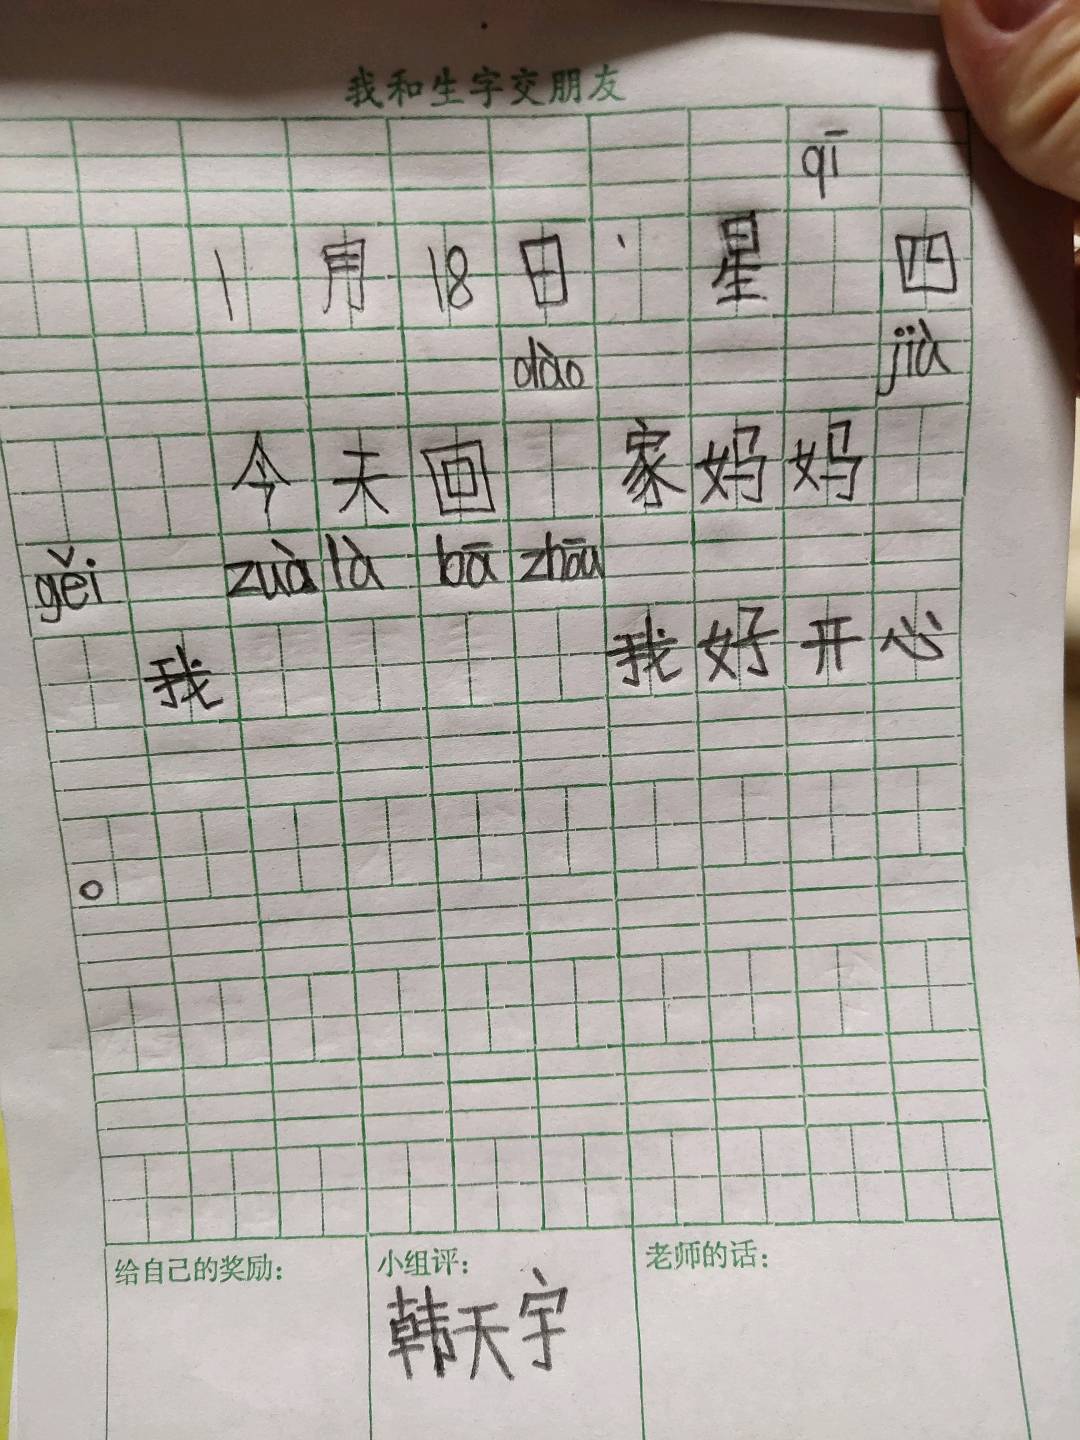 我和生字交朋友
qī
1月18日、星 四
dào jià
今天回 家妈妈
gěi zuà là bā zhōu
我 我好开心
。
给自己的奖励： 小组评： 老师的话：
韩天宇